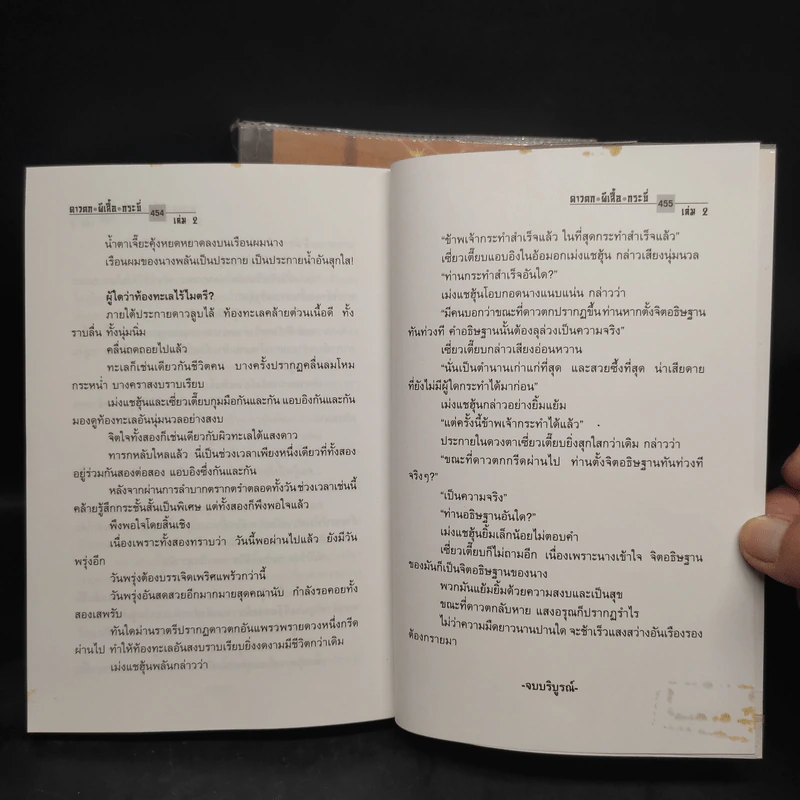 ดาวตก•ผีเสื้อ•กระบี่
454
เล่ม 2
น้ำตาเจี๊ยะคุ้งหยดหยาดลงบนเรือนผมนาง
เรือนผมของนางพลันเป็นประกาย เป็นประกายน้ำอันสุกใส!
ผู้ใดว่าท้องทะเลไร้ไมตรี?
ภายใต้ประกายดาวลูบไล้ ท้องทะเลคล้ายต่วนเนื้อดี ทั้ง
ราบลื่น ทั้งนุ่มนิ่ม
คลื่นถดถอยไปแล้ว
ทะเลก็เช่นเดียวกันชีวิตคน บางครั้งปรากฏคลื่นลมโหม
กระหน่ำ บางคราสงบราบเรียบ
เม่งแชฮุ้นและเซี่ยวเตี๊ยบกุมมือกันและกัน แอบอิงกันและกัน
มองดูท้องทะเลอันนุ่มนวลอย่างสงบ
จิตใจทั้งสองก็เช่นเดียวกับผิวทะเลใต้แสงดาว
ทารกหลับใหลแล้ว นี่เป็นช่วงเวลาเพียงหนึ่งเดียวที่ทั้งสอง
อยู่ร่วมกันสองต่อสอง แอบอิงซึ่งกันและกัน
หลังจากผ่านการลำบากตรากตรำตลอดทั้งวัน ช่วงเวลาเช่นนี้
คล้ายรู้สึกกระชั้นสั้นเป็นพิเศษ แต่ทั้งสองก็พึงพอใจแล้ว
พึงพอใจโดยสิ้นเชิง
เนื่องเพราะทั้งสองทราบว่า วันนี้พอผ่านไปแล้ว ยังมีวัน
พรุ่งอีก
วันพรุ่งต้องบรรเจิดเพริศแพร้วกว่านี้
วันพรุ่งอันสดสวยอีกมากมายสุดคณานับ กำลังรอคอยทั้ง
สองเสพรับ
ทันใดม่านราตรีปรากฏดาวตกอันแพรวพรายดวงหนึ่งกรีด
ผ่านไป ทำให้ท้องทะเลอันสงบราบเรียบยิ่งงดงามมีชีวิตกว่าเดิม
เม่งแชฮุ้นพลันกล่าวว่า
ดาวตก•ผีเสื้อ•กระบี่
455
เล่ม 2
“ข้าพเจ้ากระทำสำเร็จแล้ว ในที่สุดกระทำสำเร็จแล้ว”
เซี่ยวเตี๊ยบแอบอิงในอ้อมอกเม่งแชฮุ้น กล่าวเสียงนุ่มนวล
“ท่านกระทำสำเร็จอันใด?”
เม่งแชฮุ้นโอบกอดนางแนบแน่น กล่าวว่า
“มีคนบอกว่าขณะที่ดาวตกปรากฏขึ้น ท่านหากตั้งจิตอธิษฐาน
ทันท่วงที คำอธิษฐานนั้นต้องลุล่วงเป็นความจริง”
เซี่ยวเตี๊ยบกล่าวเสียงอ่อนหวาน
“นั่นเป็นตำนานเก่าแก่ที่สุด และสวยซึ้งที่สุด น่าเสียดาย
ที่ยังไม่มีผู้ใดกระทำได้มาก่อน”
เม่งแชฮุ้นกล่าวอย่างยิ้มแย้ม
“แต่ครั้งนี้ข้าพเจ้ากระทำได้แล้ว”
ประกายในดวงตาเซี่ยวเตี๊ยบยิ่งสุกใสกว่าเดิม กล่าวว่า
“ขณะที่ดาวตกกรีดผ่านไป ท่านตั้งจิตอธิษฐานทันท่วงที
จริงๆ?”
“เป็นความจริง”
“ท่านอธิษฐานอันใด?”
เม่งแชฮุ้นยิ้มเล็กน้อยไม่ตอบคำ
เซี่ยวเตี๊ยบก็ไม่ถามอีก เนื่องเพราะนางเข้าใจ จิตอธิษฐาน
ของมันก็เป็นจิตอธิษฐานของนาง
พวกมันแย้มยิ้มด้วยความสงบและเป็นสุข
ขณะที่ดาวตกลับหาย แสงอรุณก็ปรากฏรำไร
ไม่ว่าความมืดยาวนานปานใด จะช้าเร็วแสงสว่างอันเรืองรอง
ต้องกรายมา
-จบบริบูรณ์-